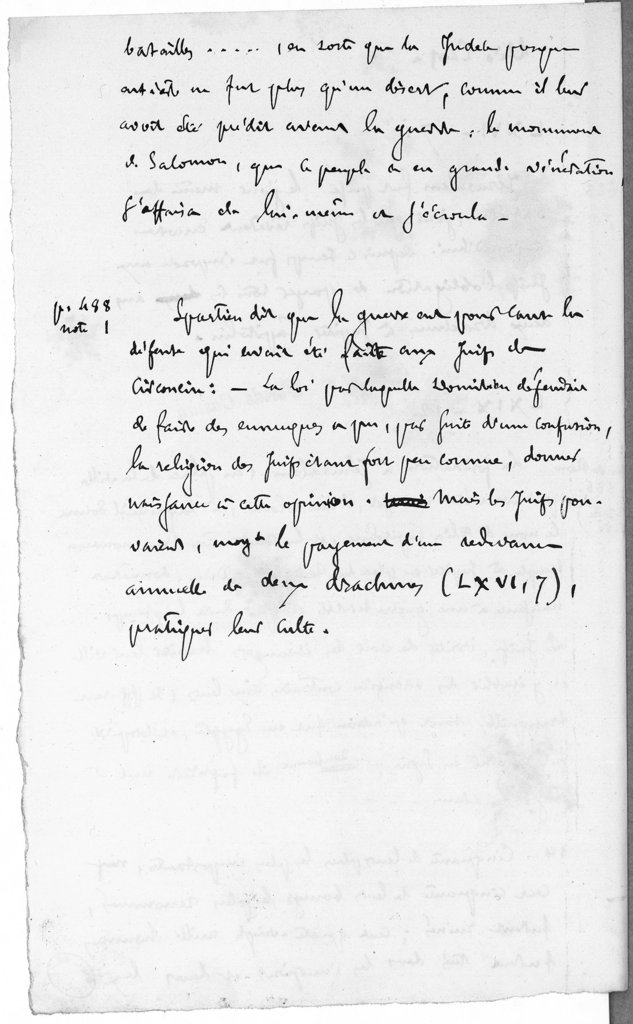 batailles ..... , en sorte que la Judée presque
entière ne fut plus qu'un désert, comme il leur
avoit été prédit avant la guerre : le monument
de Salomon, que le peuple a en grande vénération,
s'affaissa de lui-même et s'écroula _
p. 488
note 1
Spartien dit que la guerre eut pour cause la
défense qui avait été faite aux Juifs de
Circoncire : — La loi par laquelle Domitien défendait
de faire des eunuques a pu, par suite d'une confusion,
la religion des Juifs étant fort peu connue, donner
naissance à cette opinion. Mais les Juifs pou-
vaient, moyt le payement d'une redevance
annuelle de deux drachmes (LXVI, 7),
pratiquer leur culte.